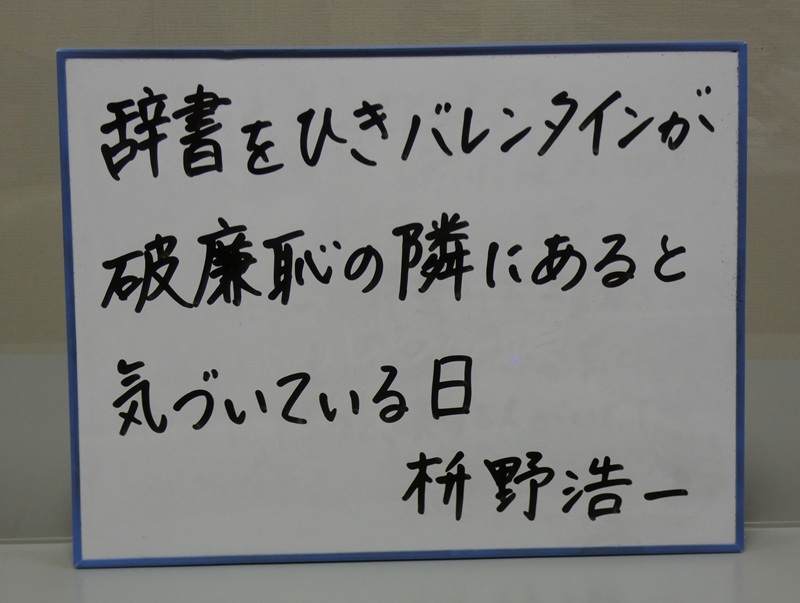 辞書をひきバレンタインが
破廉恥の隣にあると
気づいている日
枡野浩一